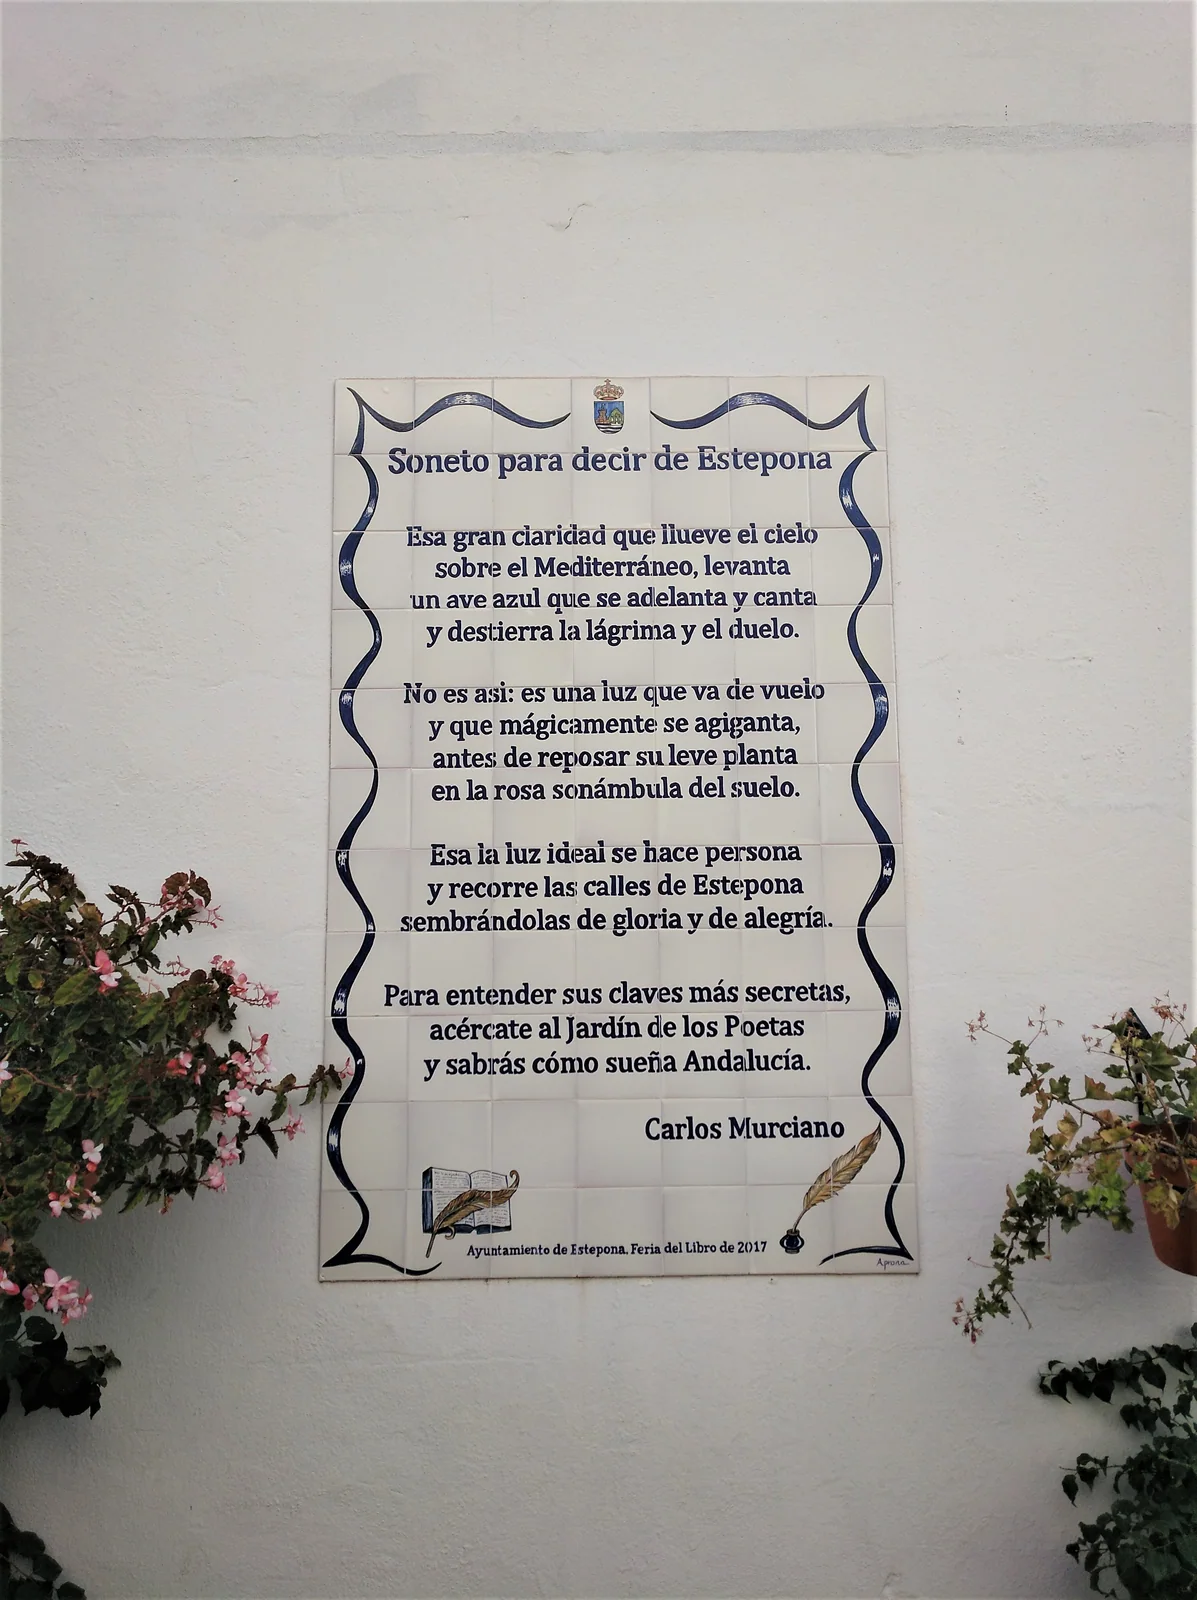 Soneto para decir de Estepona
Esa gran claridad que llueve el cielo
sobre el Mediterráneo, levanta
un ave azul que se adelanta y canta
y destierra la lágrima y el duelo.
No es asi: es una luz que va de vuelo
y que mágicamente se agiganta,
antes de reposar su leve planta
en la rosa sonámbula del suelo.
Esa la luz ideal se hace persona
y recorre las calles de Estepona
sembrándolas de gloria y de alegría.
Para entender sus claves más secretas,
acércate al Jardín de los Poetas
y sabrás cómo sueña Andalucía.
Carlos Murciano
Ayuntamiento de Estepona, Feria del Libro de 2017